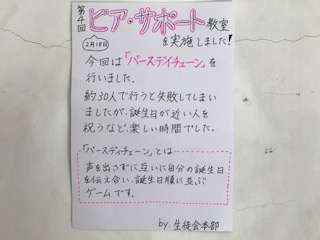 第4回
ピア・サポート教室
を実施しました!
2月18日
今回は「バースデイチェーン」を
行いました。
約30人で行うと失敗してしまい
ましたが、誕生日が近い人を
祝うなど、楽しい時間でした。
「バースディチェーン」とは
声を出さずに互いに自分の誕生日
を伝え合い、誕生日順に並ぶ
ゲームです。
by.生徒会本部